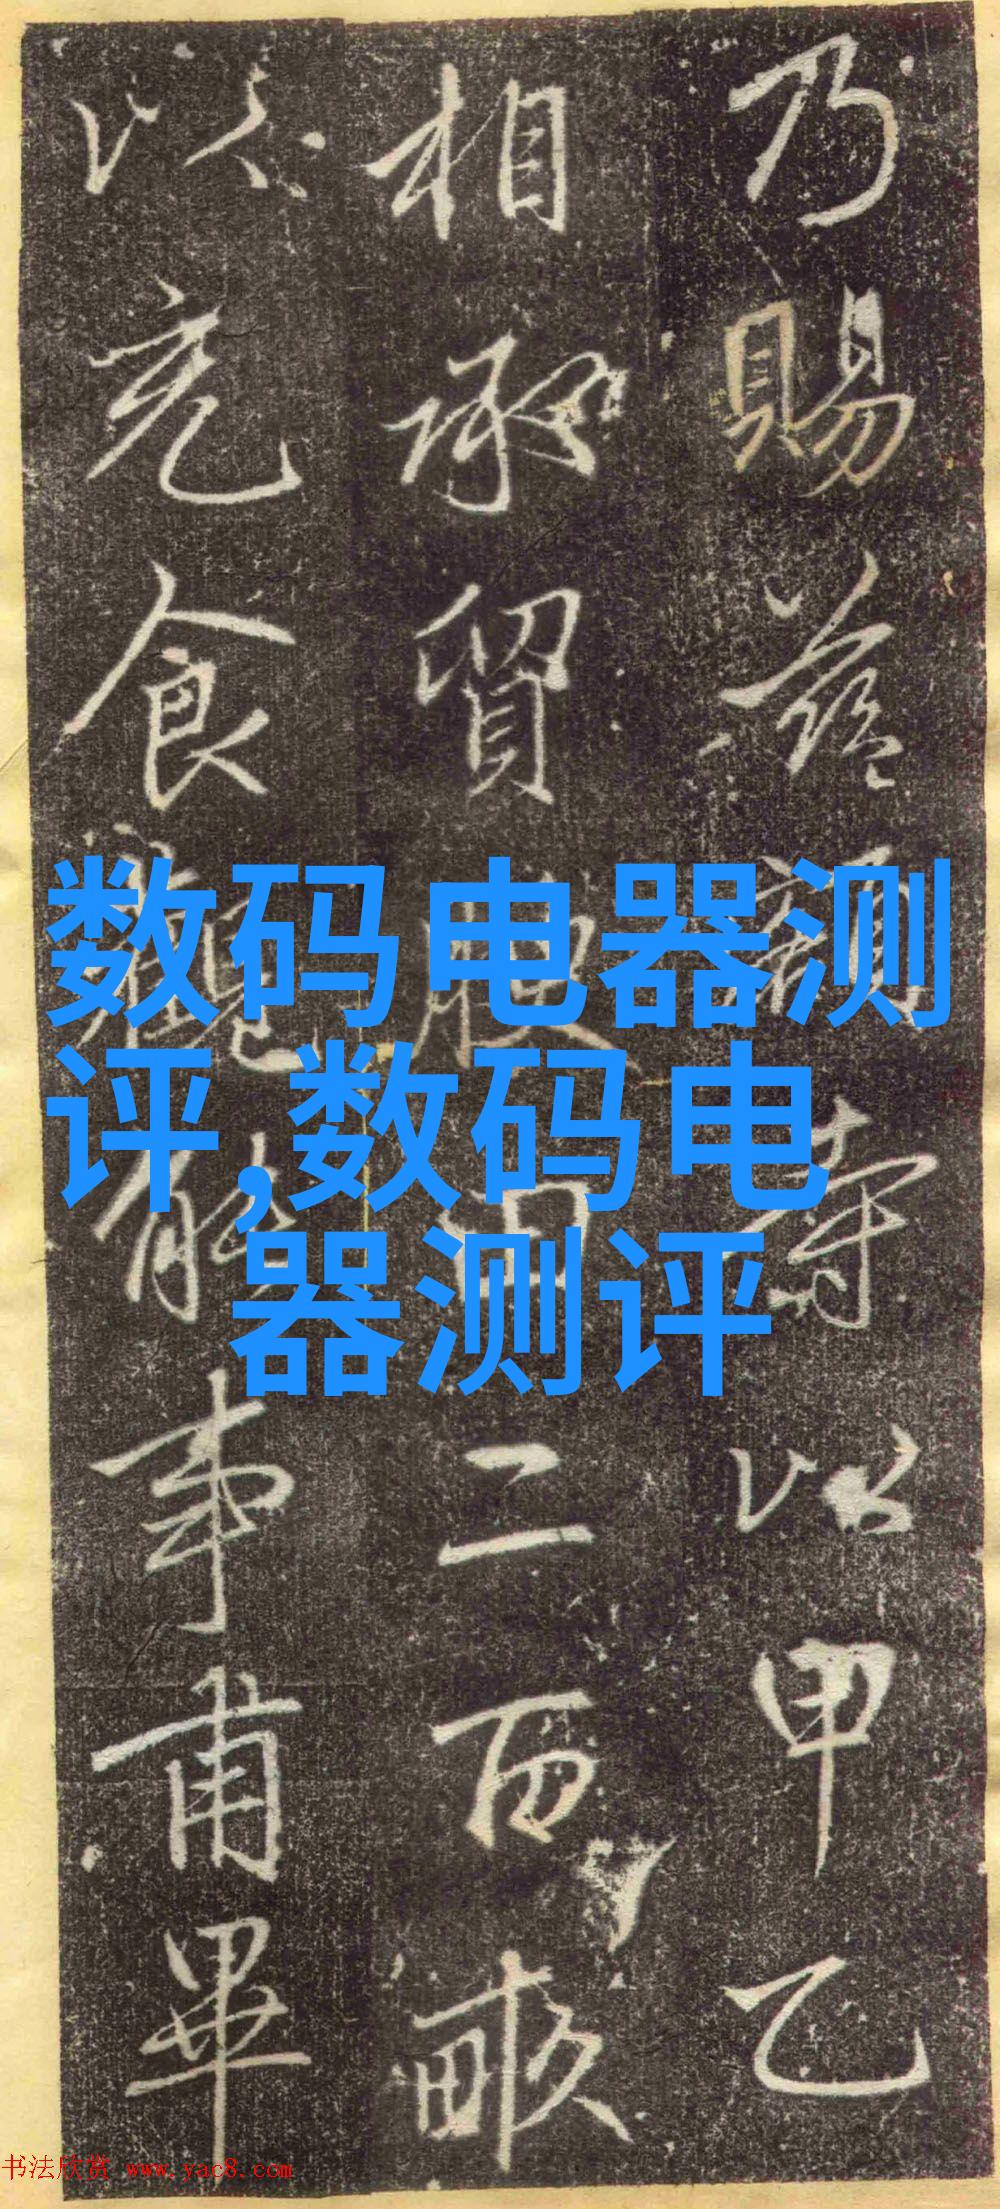 乃賜額以甲乙
相承貿腴田二百畝
以充食能事甫畢
数码电器测
评,数码电
器测评
书法欣赏 www.yac8.com